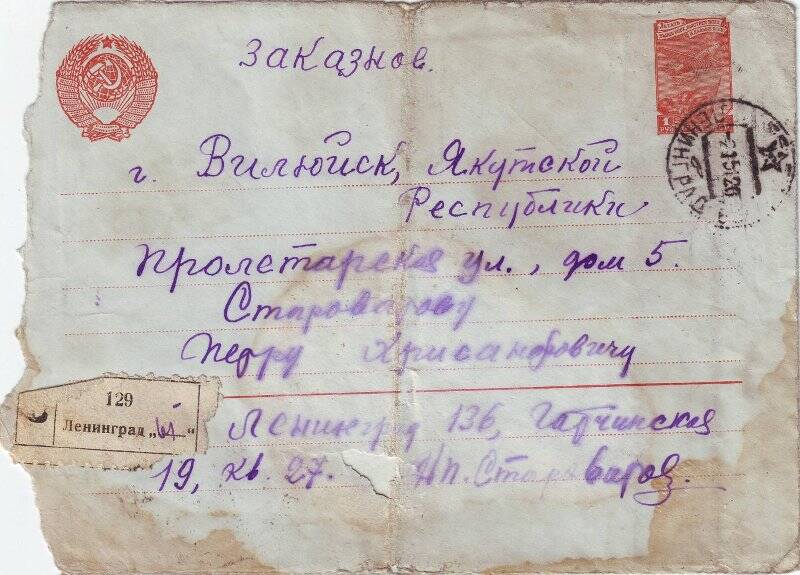 Заказное.
г. Вилюйск, Якутской
Республики
Пролетарская ул., дом 5.
Староватову
Петру Хрисанфовичу
129
Ленинград „
Ленинград 136, Гатчинская
19, кв. 27.